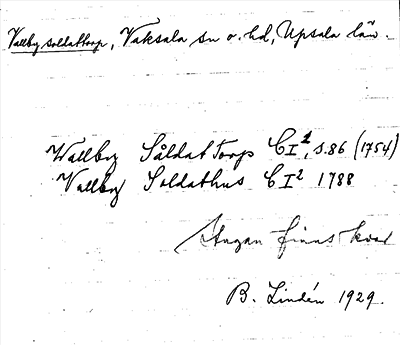 Vallby soldattorp, Vaksala sn o. hd, Upsala län.
Wallby Såldat Torp CI1, s.86 (1754)
Vallby Soldathus CI2 1788
Stugan finns kvar
B. Lindén 1929.